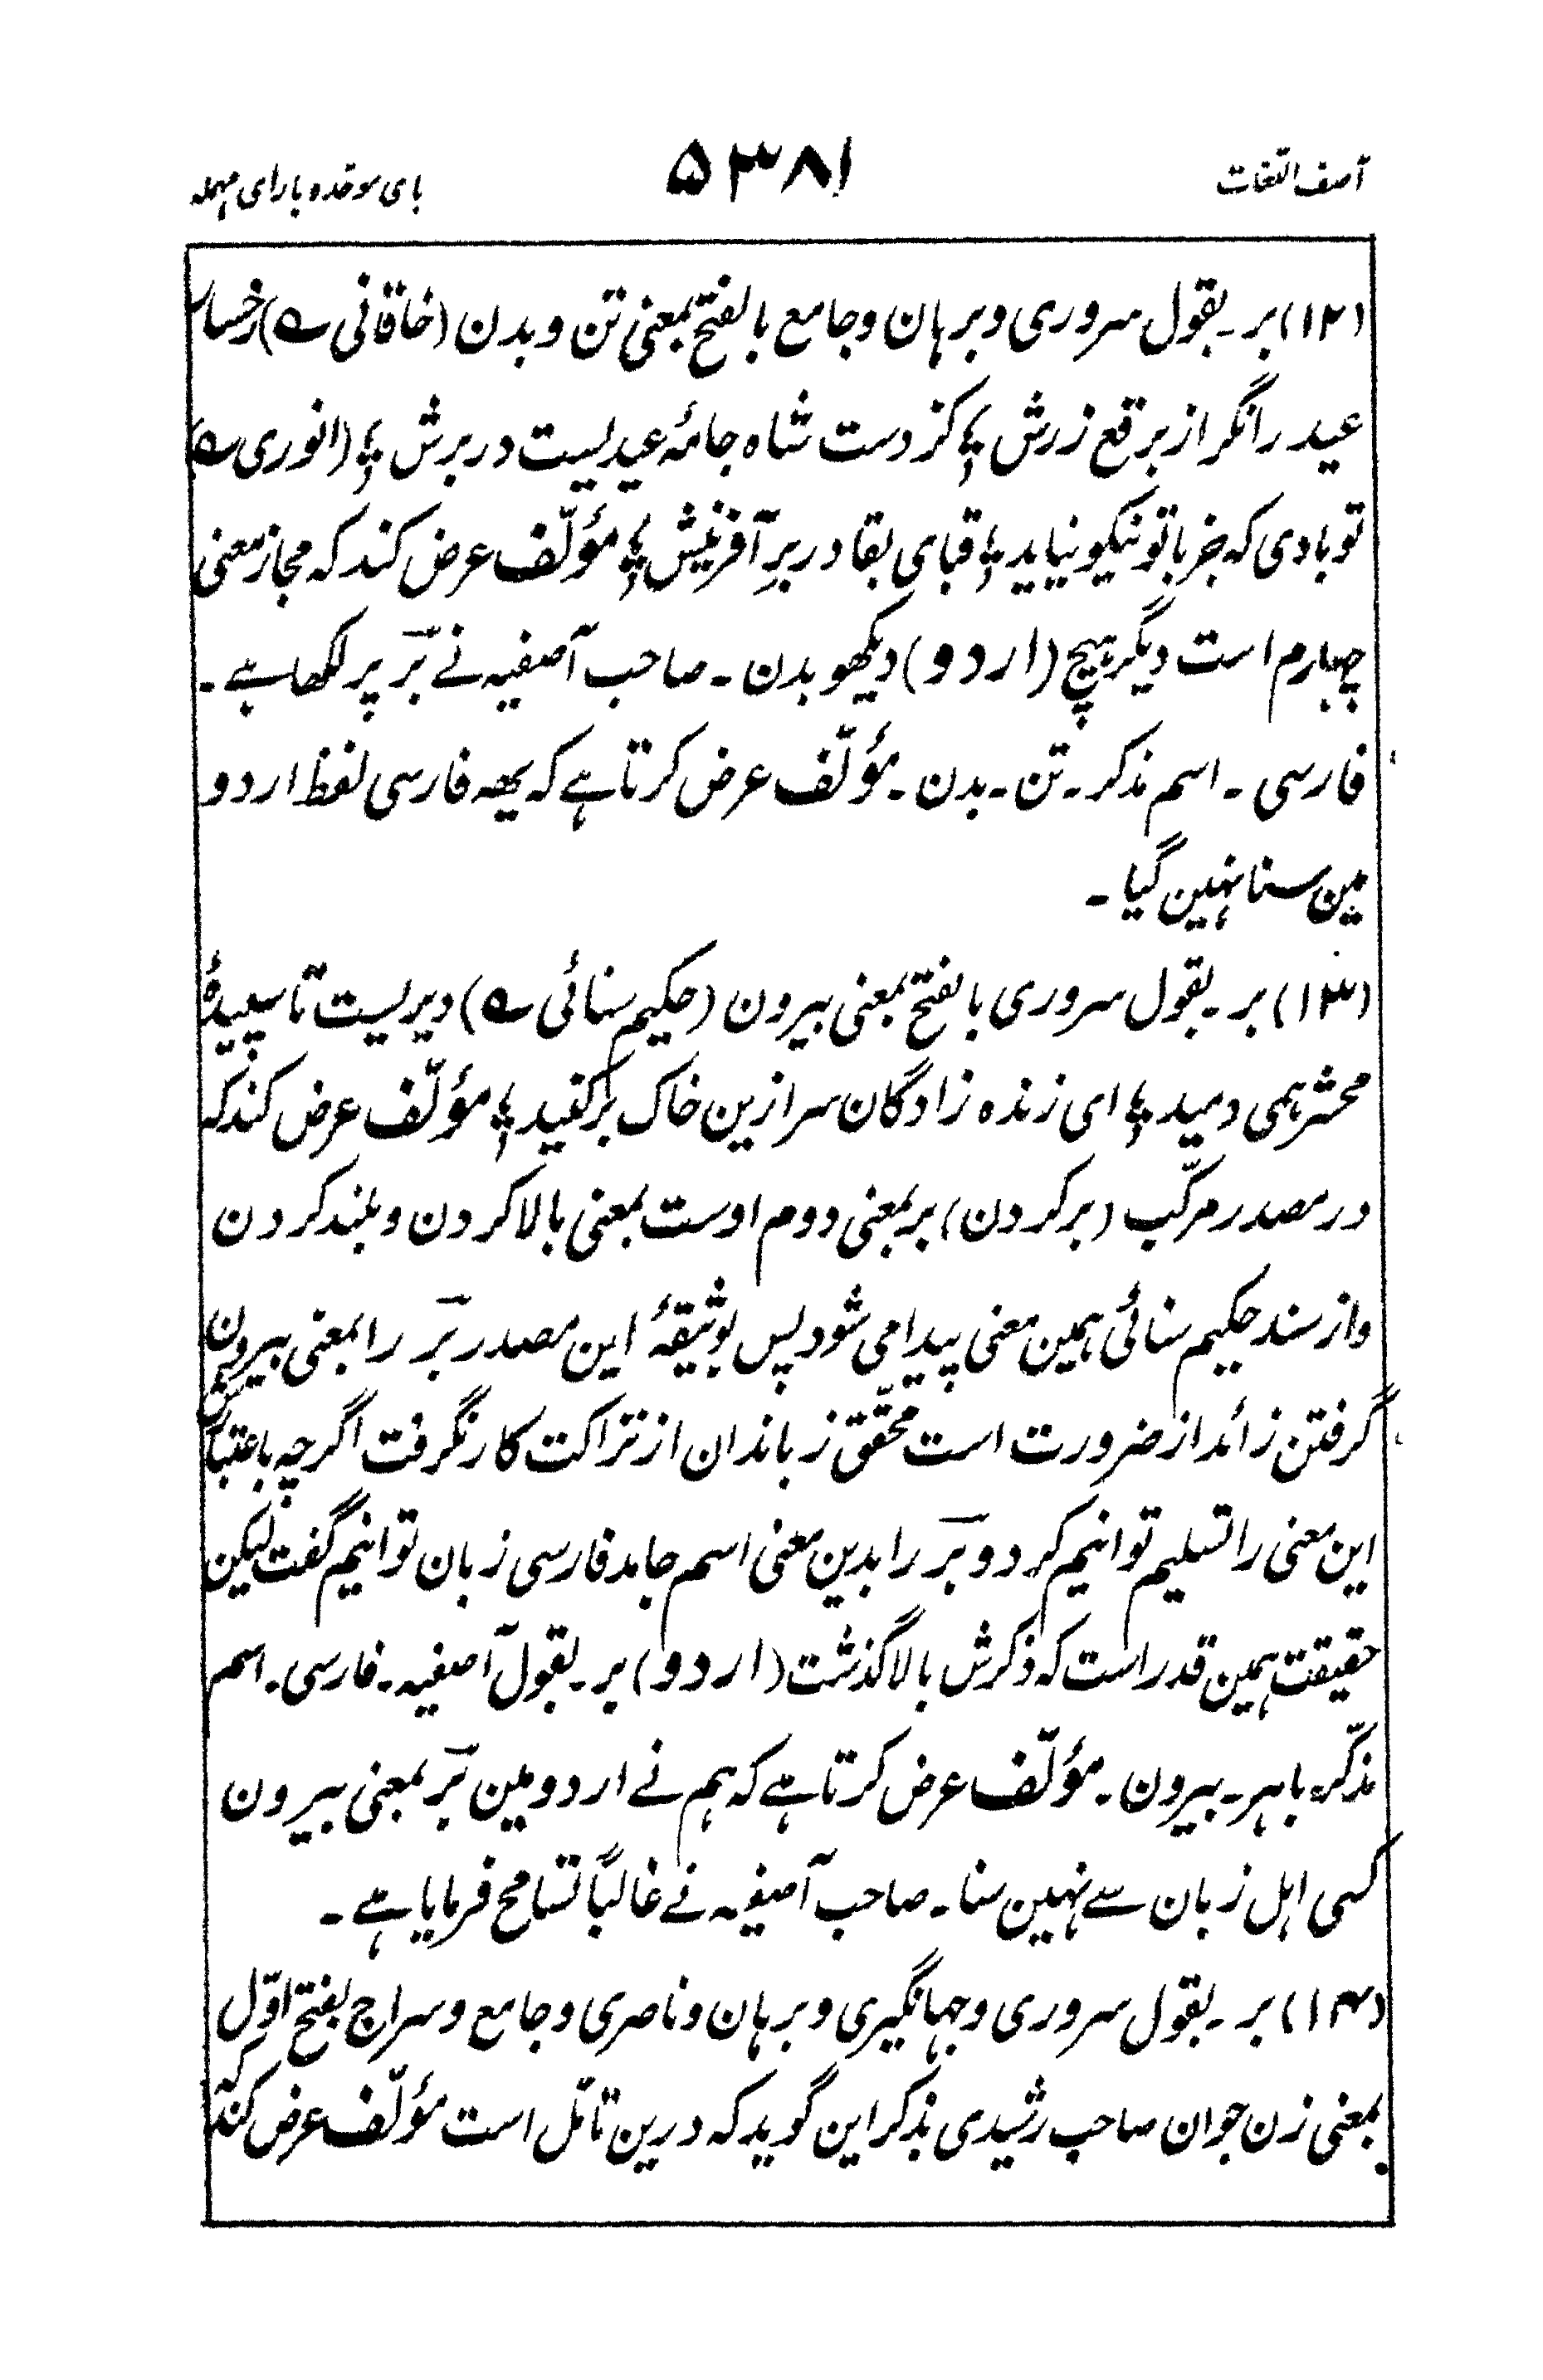 آصف اللغات
۵۳۸۱
بای موحده با رای مهمله
(۱۲) بر ۔ بقول سروری و برہان و جامع بالفتح بمعنی تن و بدن (خاقانی ؎) رخسار
عید را نگر از برقع زرش ؛ کز دست شاه جامۂ عیدیست در برش ؛ (انوری ؎)
تو بادی که جز با تو نیکو نیاید ؛ قبای بقا در برِ آفرینش ؛ مؤلّف عرض کند که مجاز معنی
چهارم است دیگر ہیچ (اردو) دیکھو بدن ۔ صاحب آصفیہ نے بَر پر لکھا ہے ۔
فارسی ۔ اسم مذکر ۔ تن ۔ بدن ۔ مؤلّف عرض کرتا ہے کہ یھہ فارسی لفظ اردو
مین سنا نہین گیا ۔
(۱۳) بر ۔ بقول سروری بالفتح بمعنی بیرون (حکیم سنائی ؎) دیریست تا سپیدۂ
محشر ہمی دمید ؛ ای زنده زادگان سر ازین خاک برکنید ؛ مؤلّف عرض کند که
در مصدر مرکّب (بر کردن) بر بمعنی دوم اوست بمعنی بالا کردن و بلند کردن
و از سند حکیم سنائی ہمین معنی پیدا می شود پس بوثیقۂ این مصدر بَر را بمعنی بیرون
گرفتن زائد از ضرورت است محقّق زباندان از نزاکت کار نگرفت اگرچہ باعتبارش
این معنی را تسلیم توانیم کرد و بَر را بدین معنی اسم جامد فارسی زبان توانیم گفت لیکن
حقیقت ہمین قدر است که ذکرش بالا گذشت (اردو) بر ۔ بقول آصفیہ ۔ فارسی ۔ اسم
مذکّر ۔ باہر ۔ بیرون ۔ مؤلّف عرض کرتا ہے کہ ہم نے اردو مین بَر بمعنی بیرون
کسی اہل زبان سے نہین سنا ۔ صاحب آصفیہ نے غالباً تسامح فرمایا ہے ۔
(۱۴) بر ۔ بقول سروری و جہانگیری و برہان و ناصری و جامع و سراج بفتح اوّل
بمعنی زن جوان صاحب رشیدی بذکر این گوید که درین تأمّل است مؤلّف عرض کند که